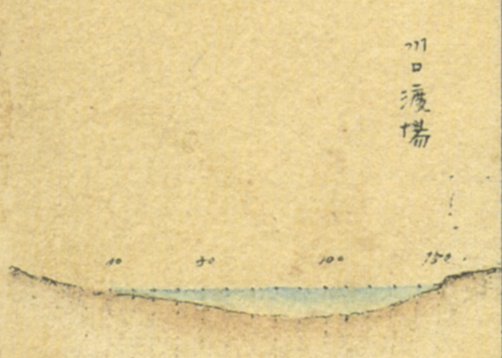 川口渡場
10 50 100 150